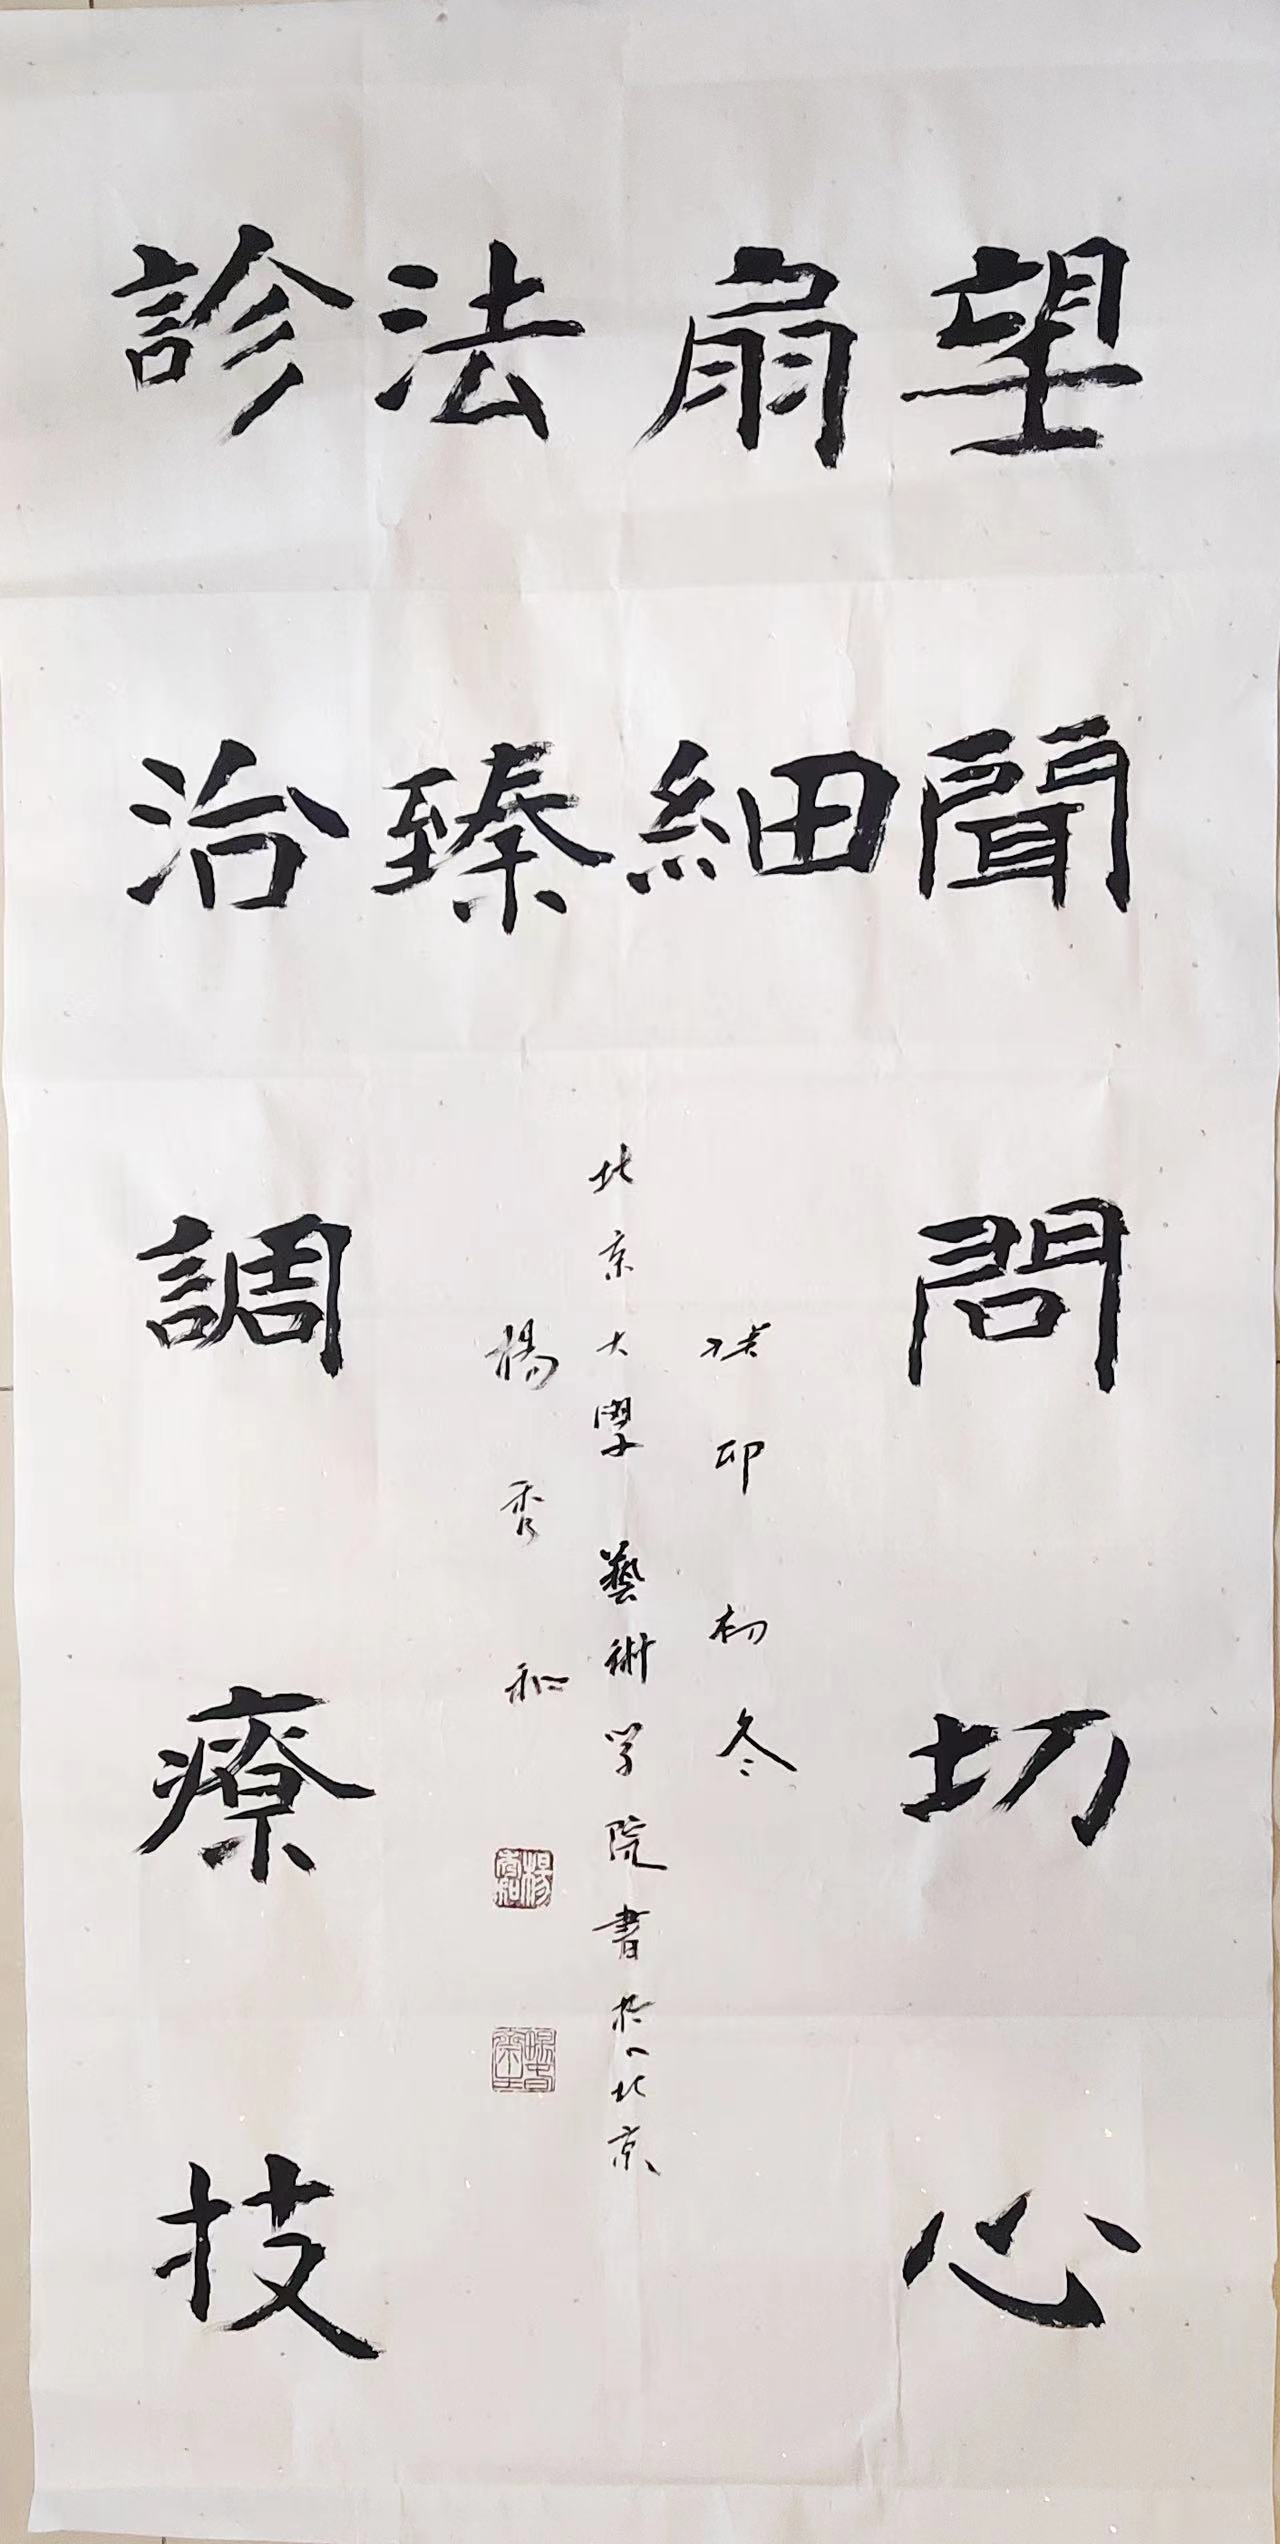 望聞問切心
扇細
法臻
診治調療技
癸卯初冬
北京大學藝術学院書於北京
楊秀和